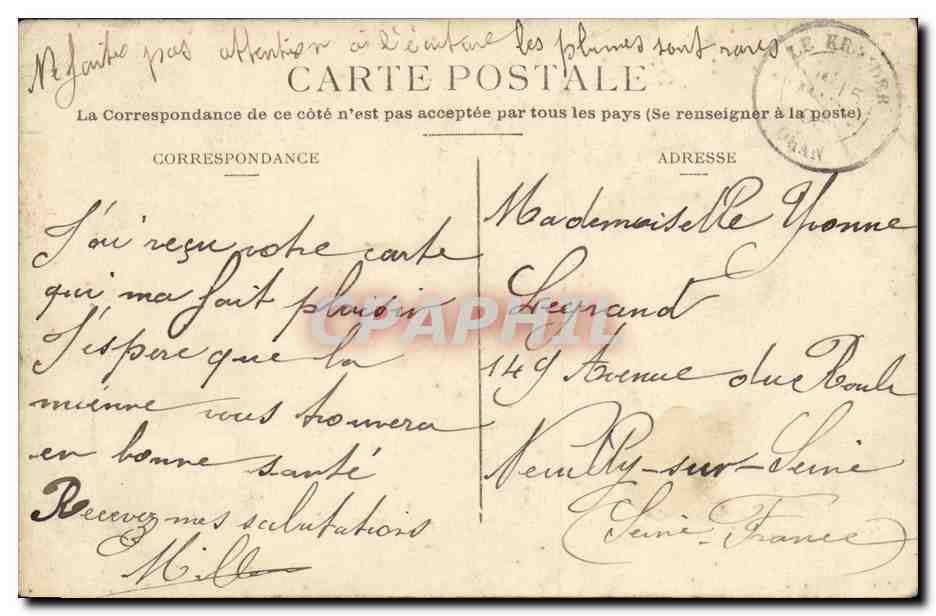 Ne faite pas attention à l'écriture les plumes sont rares
CARTE POSTALE
La Correspondance de ce côté n'est pas acceptée par tous les pays (Se renseigner à la poste)
LE KREIDER
ORAN
CORRESPONDANCE
J'ai reçu votre carte
qui ma fait plaisir
J'espere que la
mienne vous trouvera
en bonne santé
Recevez mes salutations
ADRESSE
Mademoiselle Yvonne
Legrand
149 Avenue du Roule
Neuilly-sur-Seine
(Seine-France)
CPAPHIL